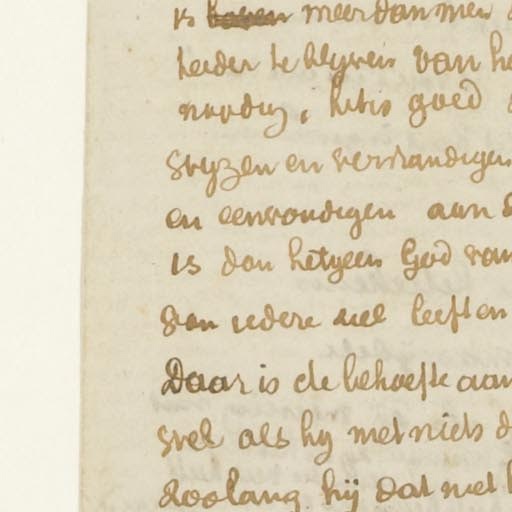 is meer dan men
leider te blyven van
noodig, het is goed
wyzen en verstandigen
en eenvoudigen aan
is dan hetgeen God van
dan iedere wel leeft en
Daar is de behoefte aan
wel als hy met niets
zoolang hij dat met